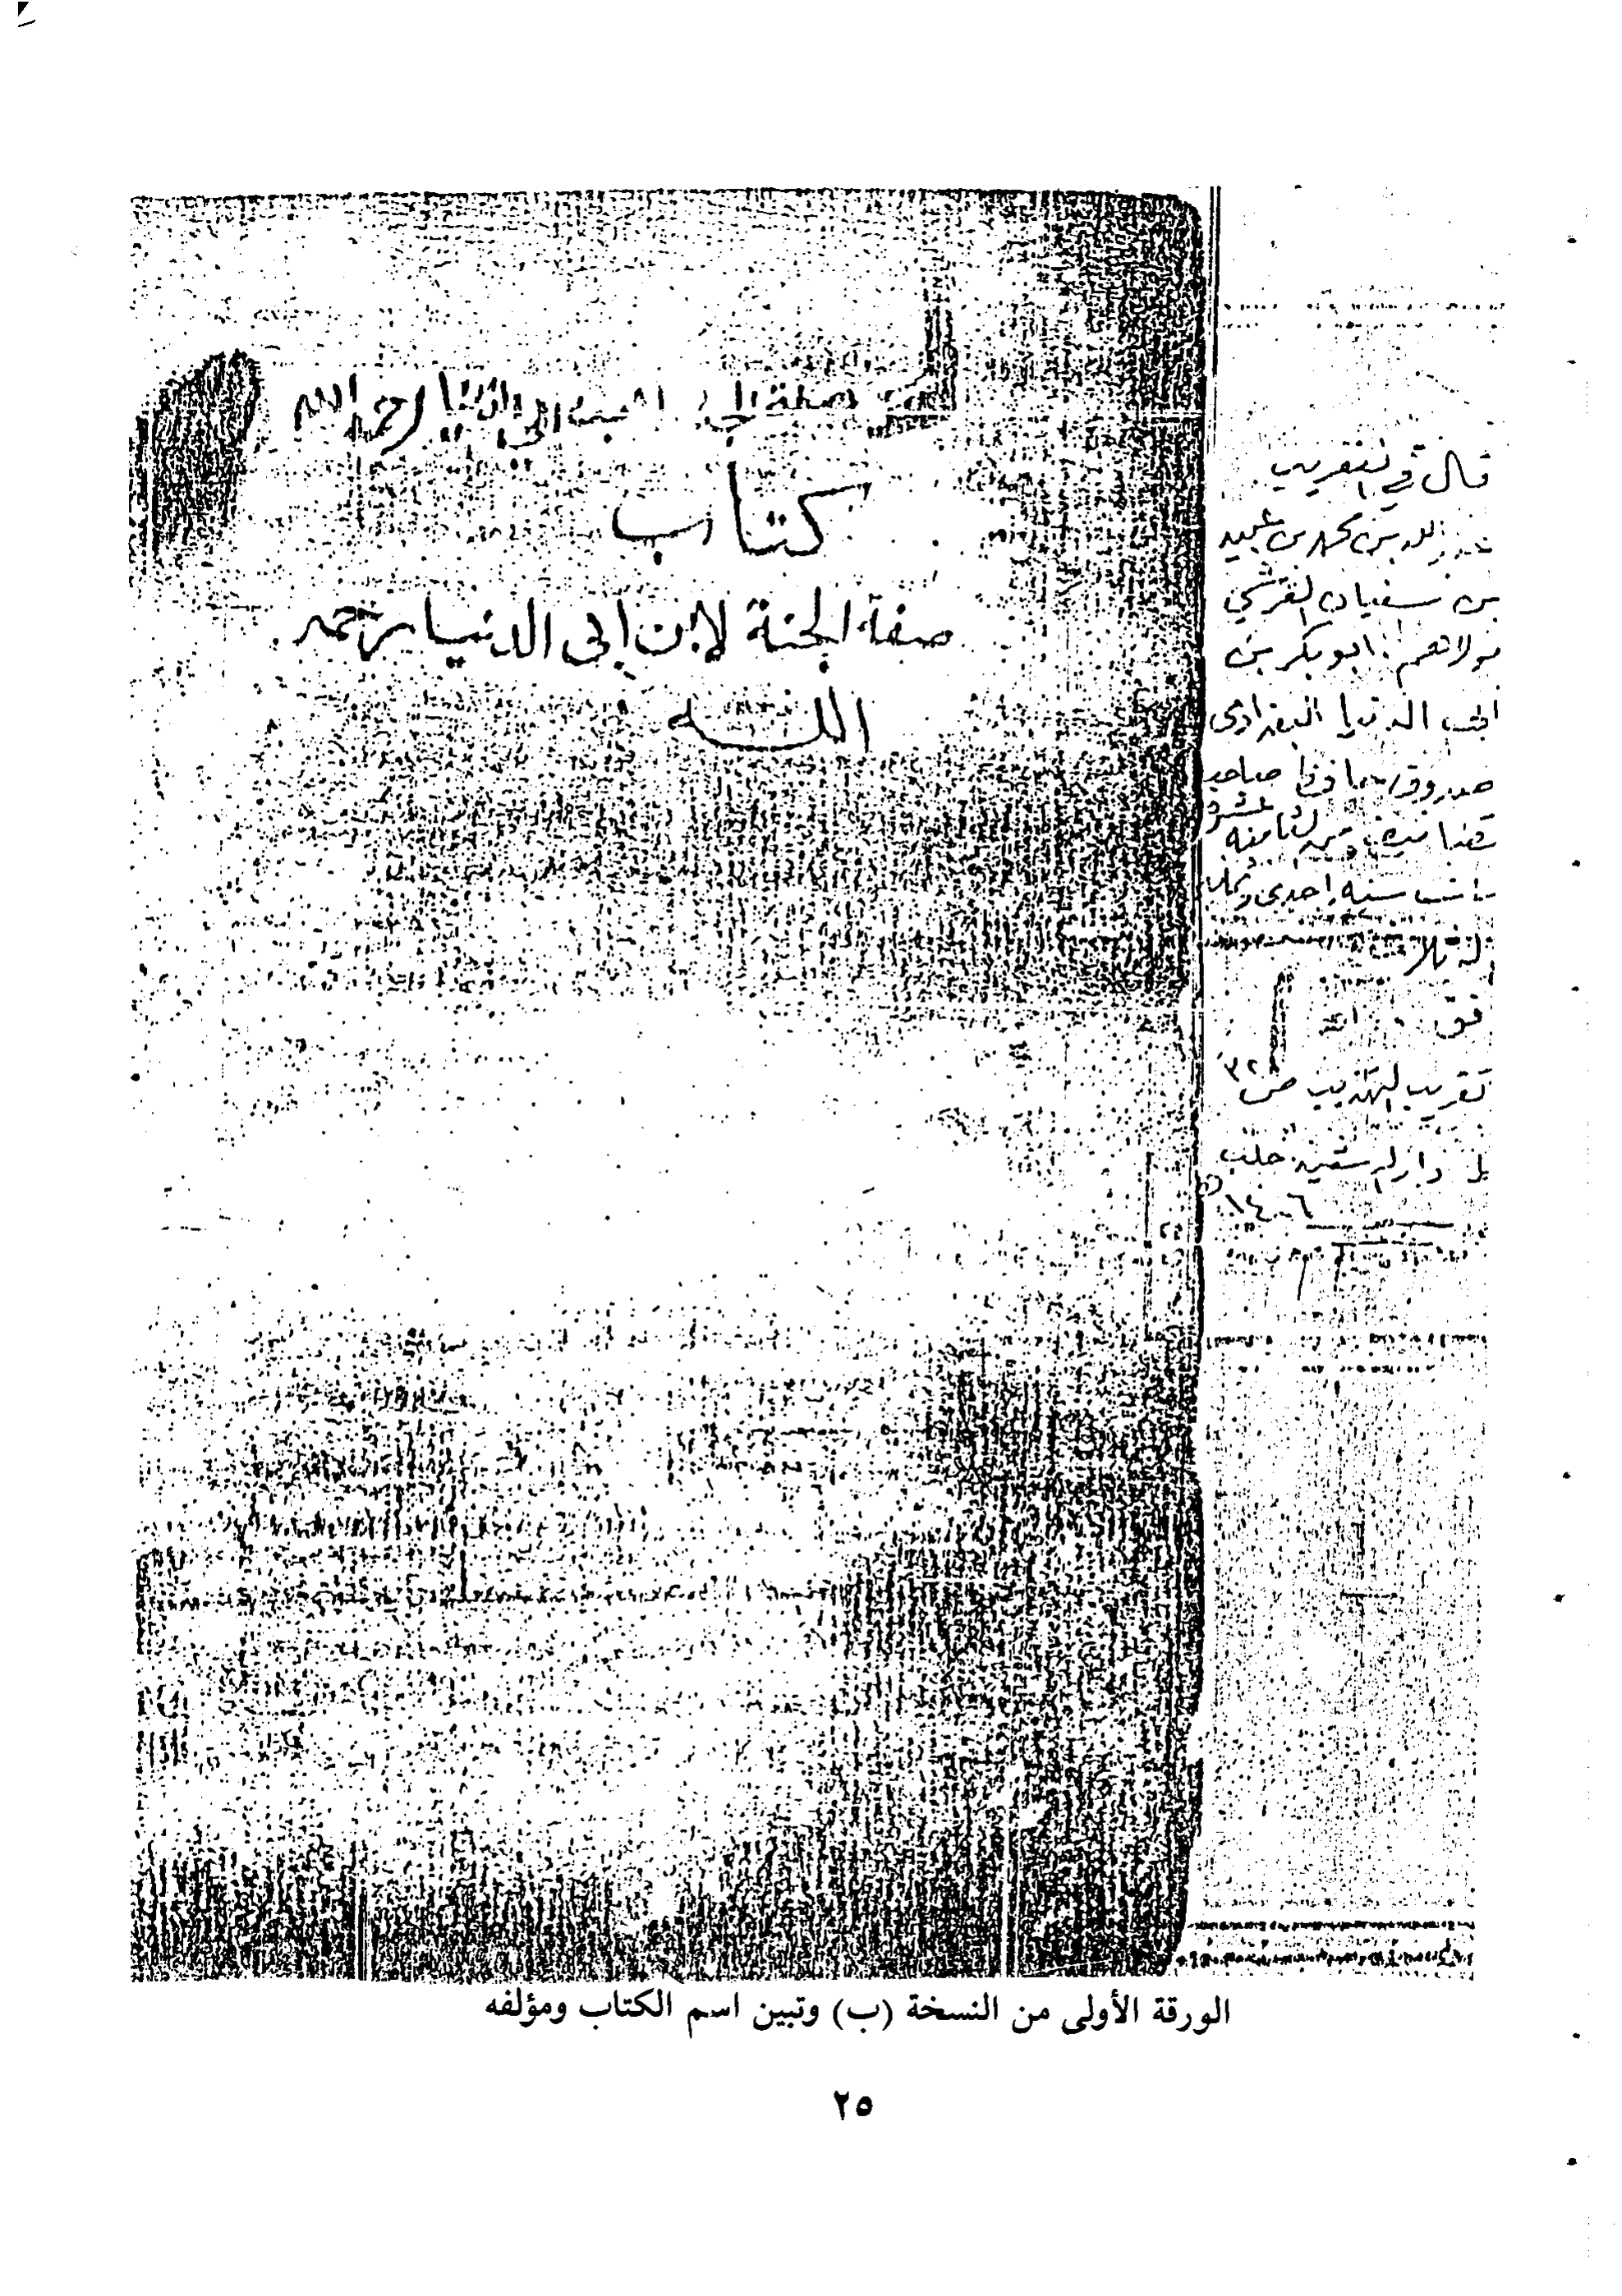 صفة الجنة لابن ابي الدنيا رحمه الله
كتاب
صفة الجنة لابن ابى الدنيا رحمه
الله
قال في التقريب
الله بن محمد بن عبيد
بن سفيان القرشي
مولاهم ابو بكر بن
ابي الدنيا البغدادى
صدوق حافظ صاحب
تصانيف من الثامنة عشرة
مات سنة احدى وثمان
له
فق
تقريب التهذيب ص
دار الرشيد حلب
١٤٠٦
الورقة الأولى من النسخة (ب) وتبين اسم الكتاب ومؤلفه
٢٥